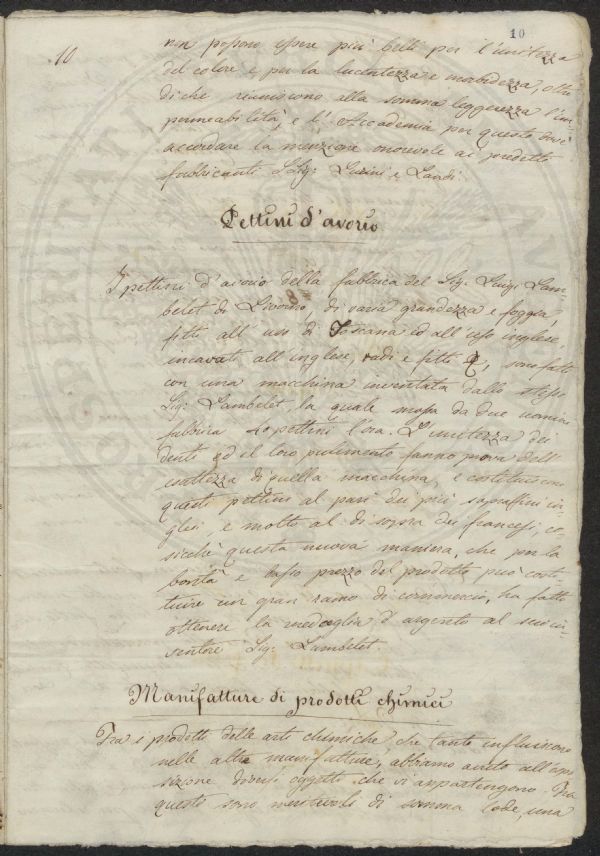 10
10
non possono essere più belli per l'unitezza
del colore e per la lucentezza e morbidezza, oltre
di che riuniscono alla somma leggerezza l'im-
permeabilità, e l'Accademia per questo
accordare la menzione onorevole ai predetti
fabbricanti Sig: e Landi.
Pettini d'avorio
I pettini d'avorio della fabbrica del Sig: Luigi Lam-
belet di Livorno, di varia grandezza e foggia,
fitti all'uso di Toscana ed all'uso inglese,
incavati all'inglese, radi e fitti, son fatti
con una macchina inventata dallo stesso
Sig: Lambelet, la quale mossa da due uomini
fabbrica 40 pettini l'ora. L'unitezza dei
denti ed il loro pulimento fanno prova dell'
esattezza di quella macchina, e costituiscono
questi pettini al pari dei più sopraffini in-
glesi, e molto al di sopra dei francesi, co-
sicchè questa nuova maniera, che per la
bontà e basso prezzo del prodotto può costi-
tuire un gran ramo di commercio, ha fatto
ottenere la medaglia d'argento al suo in-
ventore Sig: Lambelet.
Manifatture di prodotti chimici
Tra i prodotti delle arti chimiche, che tanto influiscono
nelle altre manifatture, abbiamo avuto all'espo
sizione diversi oggetti che vi appartengono. Tra
questi sono meritevoli di somma lode, una